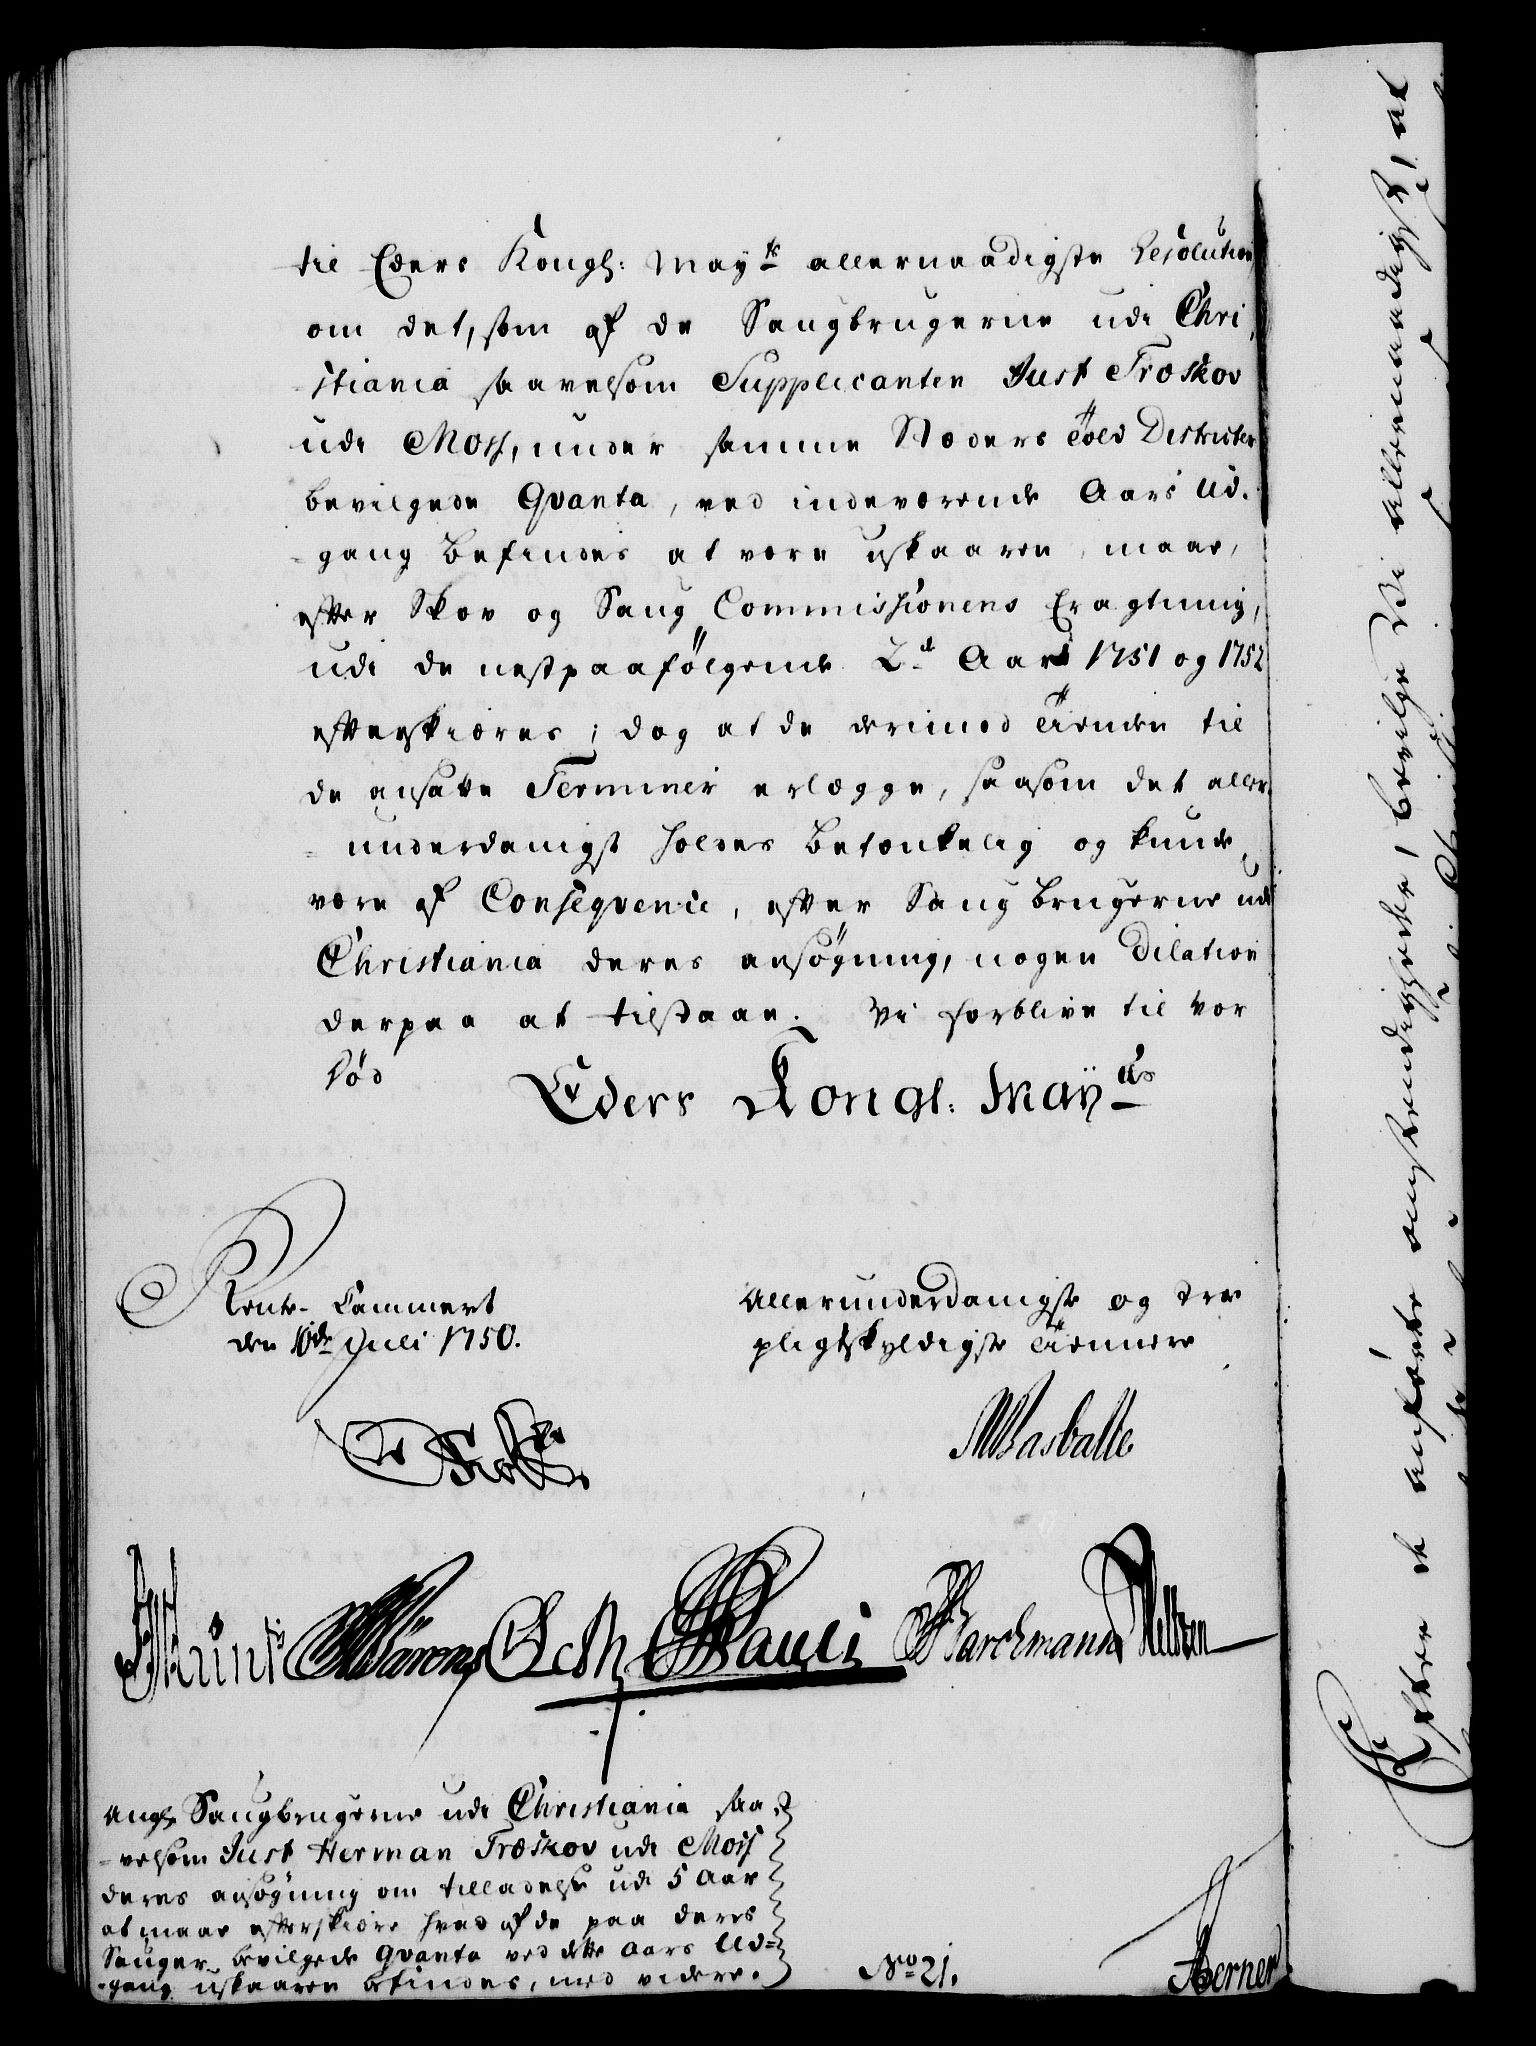 til Eders Kongl: May<sup>ts</sup> allernaadigste Resolution
om det, som af de Saugbrugerne udi Chri-
stiania saavelsom Supplicanten Just Træskov
udi Moss, under samme Stæders Told Districter
bevilgede Qvanta, ved indeværende Aars Ud-
gang befindes at være uskaaren, maae,
efter Skov og Saug Commissionens Eragtning,
udi de nestpaafølgende 2de Aar 1751 og 1752
efterskiæres; dog at de derimod Tienden til
de ansatte Terminer erlægge, saasom det aller-
underdanigst holdes betænkelig og kunde
være af Conseqvence, efter Saugbrugerne udi
Christiania deres ansøgning, nogen Dilation
derpaa at tilstaae. Vi forblive til vor
Død
Eders Kongl. May<sup>ts</sup>
Rente-Cammert
den 10de Julii 1750.
Allerunderdanigste og troe
pligtskyldigste Tiennere
Holmsted
Angl. Saugbrugerne udi Christiania saa-
velsom Just Herman Træskov udi Moss
deres ansøgning om tilladelse udi 5 Aar
at maae efterskiære hvad af de paa deres
Sauger bevilgede Qvanta ved dette Aars Ud-
gang uskaaren befindes, med videre.
No 21.
Berner
Efter de anførte omstændigheder, bevilge Vi allernaadigst, at